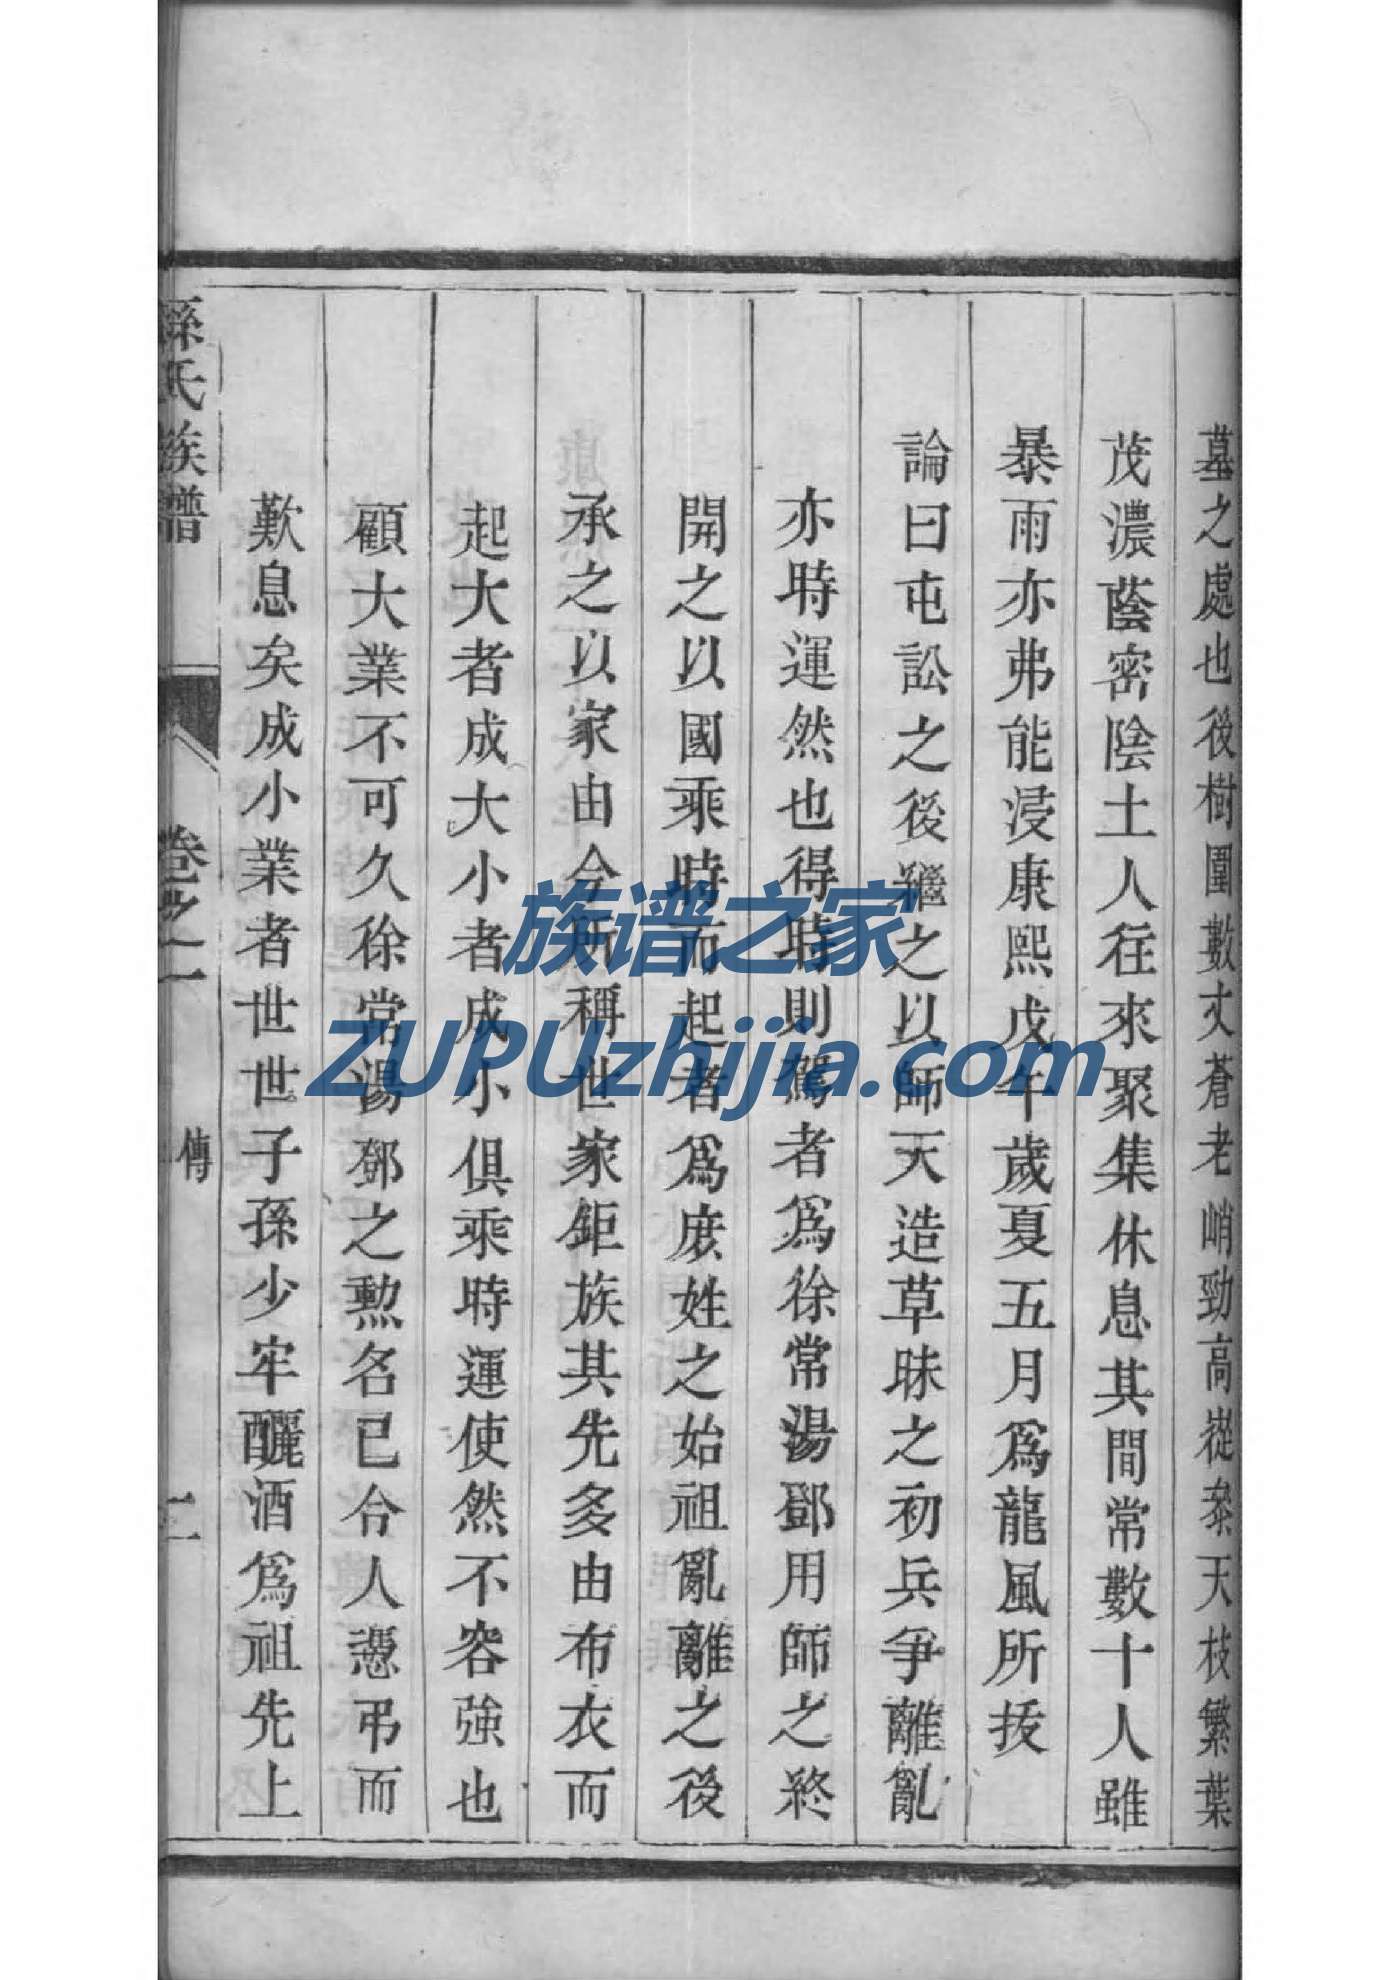 墓之處也後樹圍數丈蒼老峭勁高從叅天枝繁葉
茂濃蔭密陰土人往來聚集休息其間常數十人雖
暴雨亦弗能浸康熙戊午歲夏五月爲龍風所拔
論曰屯訟之後繼之以師天造草昧之初兵爭離亂
亦時運然也得時則駕者爲徐常湯鄧用師之終
開之以國乘時而起者爲庶姓之始祖亂離之後
承之以家由今所稱世家鉅族其先多由布衣而
起大者成大小者成小俱乘時運使然不容強也
顧大業不可久徐常湯鄧之勲名已令人憑弔而
歎息矣成小業者世世子孫少牢釃酒爲祖先上
孫氏族譜
卷之一
傳
二
族谱之家
ZUPUzhijia.com